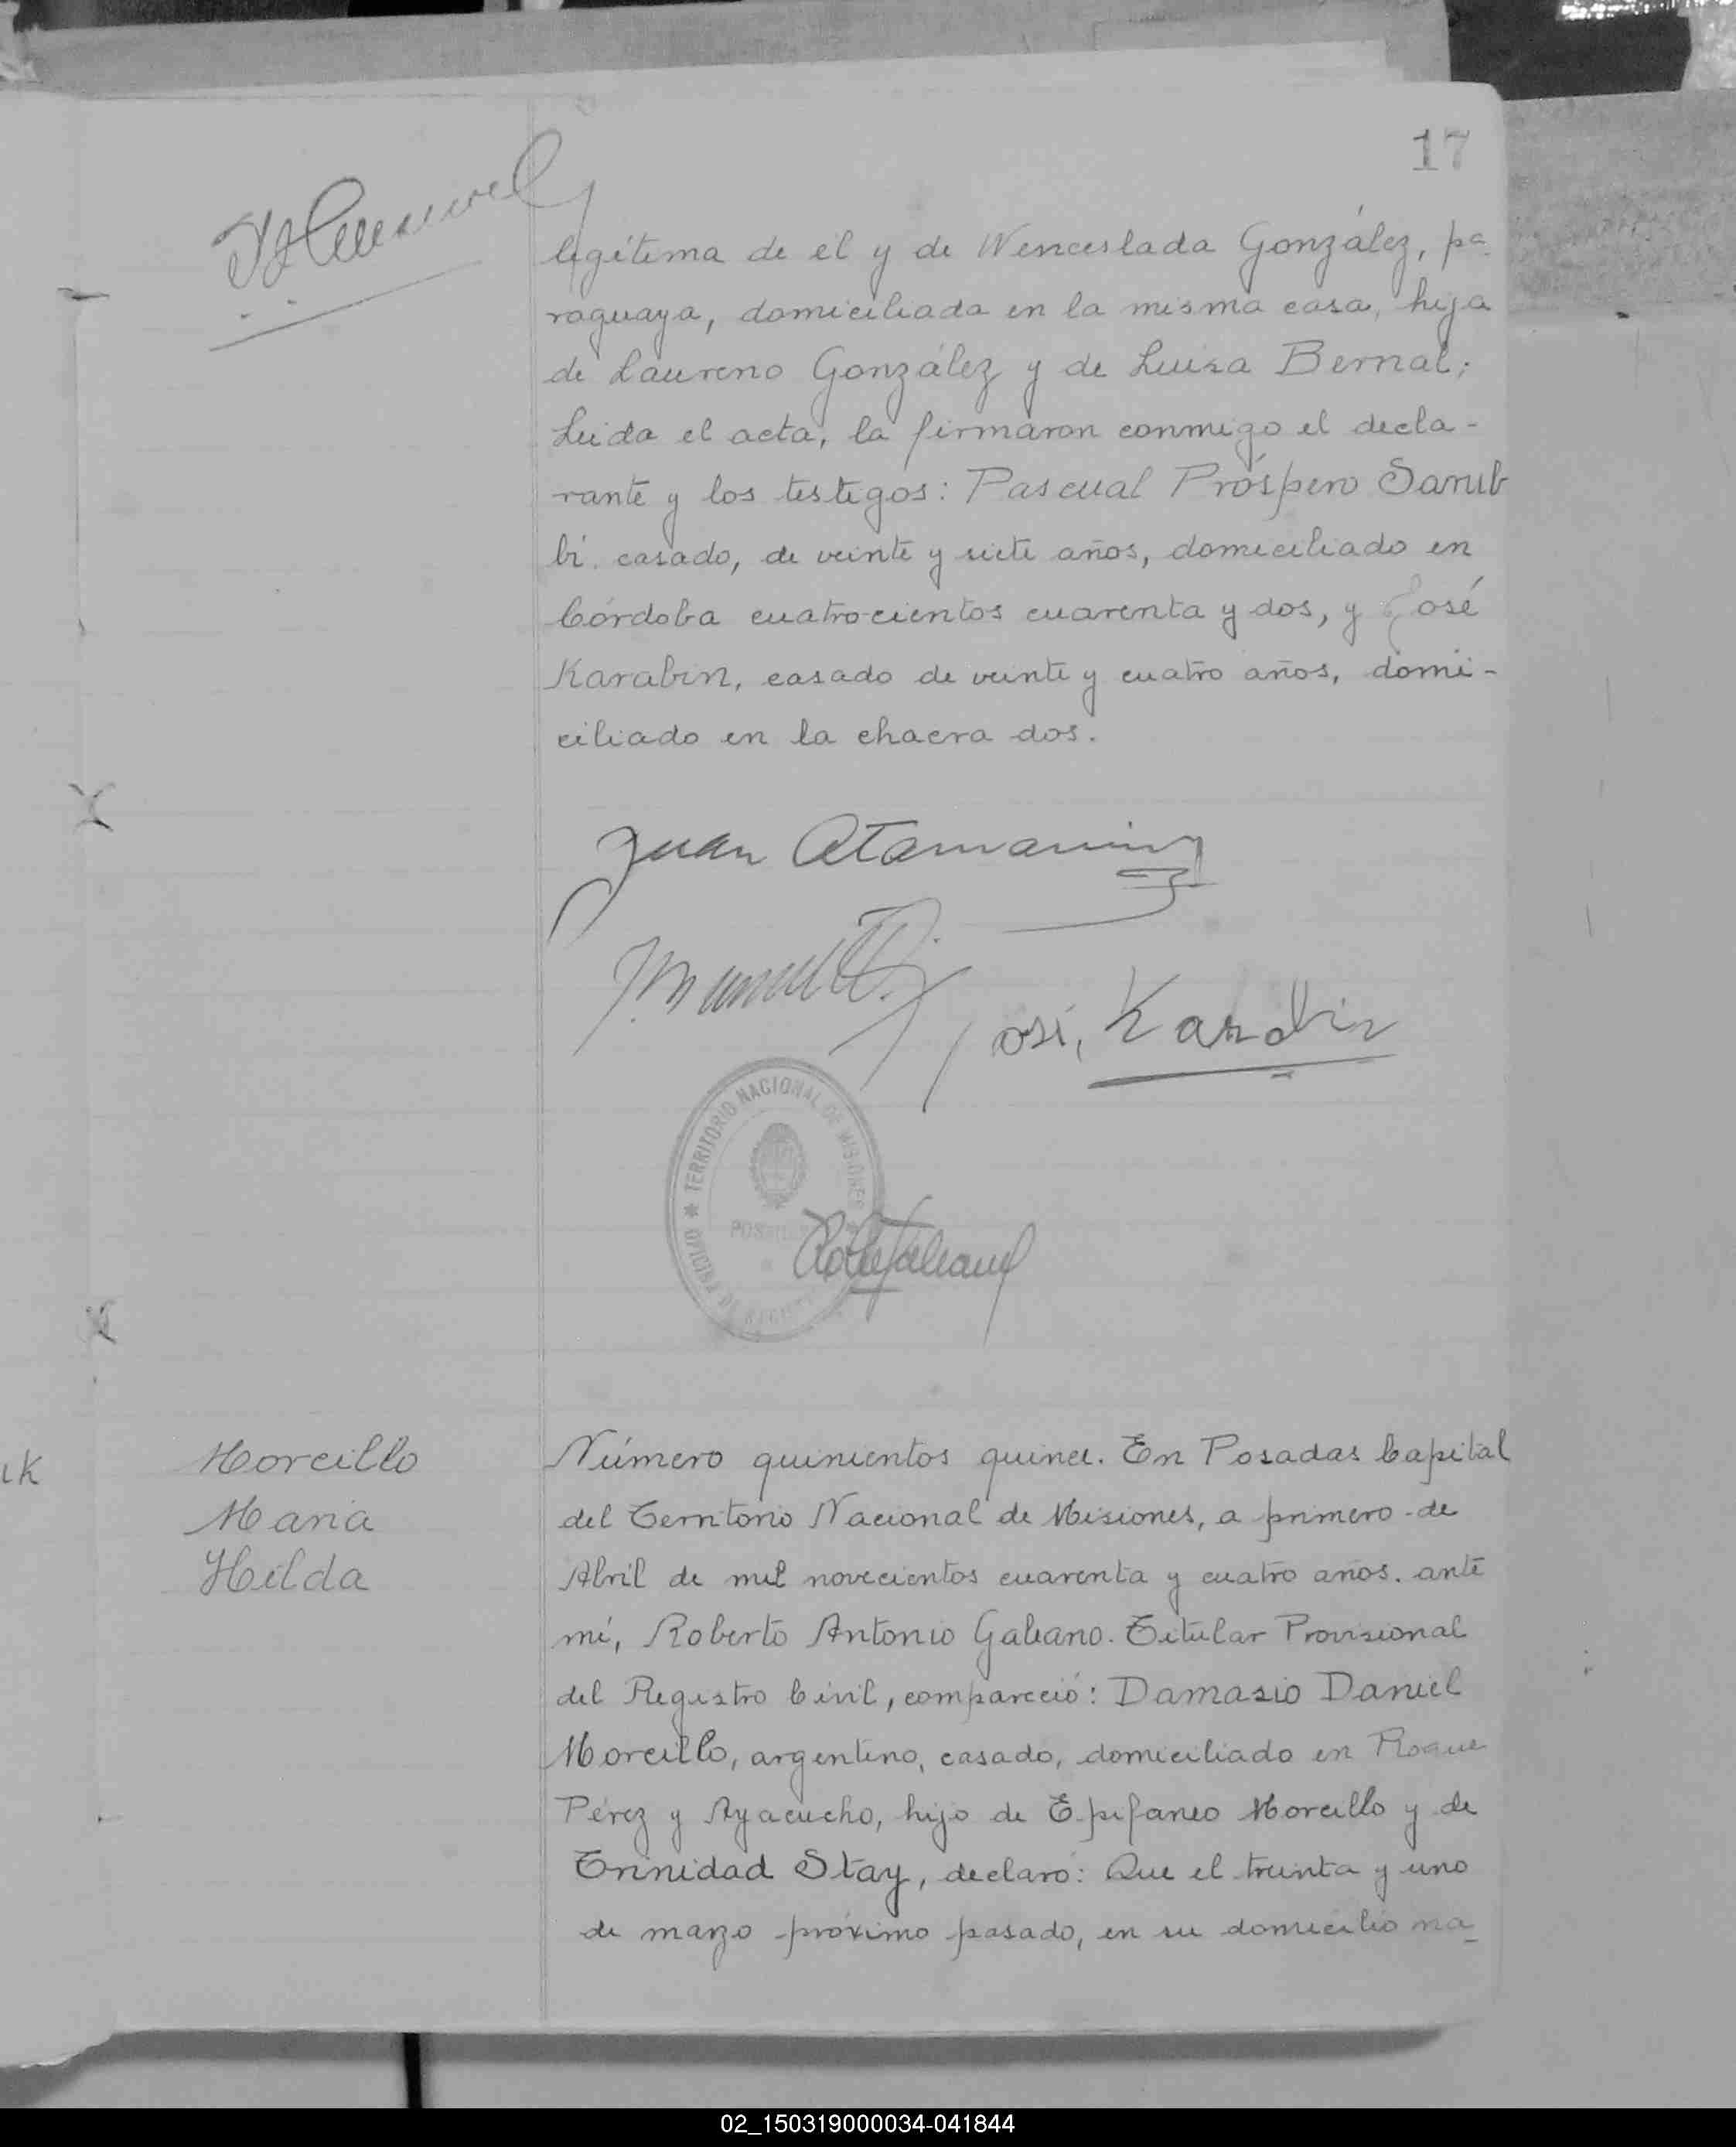 17
legítima de él y de Wenceslada González, pa-
raguaya, domiciliada en la misma casa, hija
de Laureno González y de Luisa Bernal;
Leida el acta, la firmaron conmigo el decla-
rante y los testigos: Pascual Próspero
bi. casado, de veinte y siete años, domiciliado en
Córdoba cuatrocientos cuarenta y dos, y José
Karabin, casado de veinte y cuatro años, domi-
ciliado en la chacra dos.
Juan
José, Karabin
TERRITORIO NACIONAL DE MISIONES
POSADAS
Morcillo
Maria
Hilda
ik
Número quinientos quince. En Posadas Capital
del Territorio Nacional de Misiones, a primero de
Abril de mil novecientos cuarenta y cuatro años. ante
mí, Roberto Antonio Galeano. Titular Provisional
del Registro Civil, compareció: Damasio Daniel
Morcillo, argentino, casado, domiciliado en Roque
Pérez y Ayacucho, hijo de Epifanio Morcillo y de
Trinidad Stay, declaró: Que el treinta y uno
de marzo próximo pasado, en su domicilio na-
02_150319000034-041844